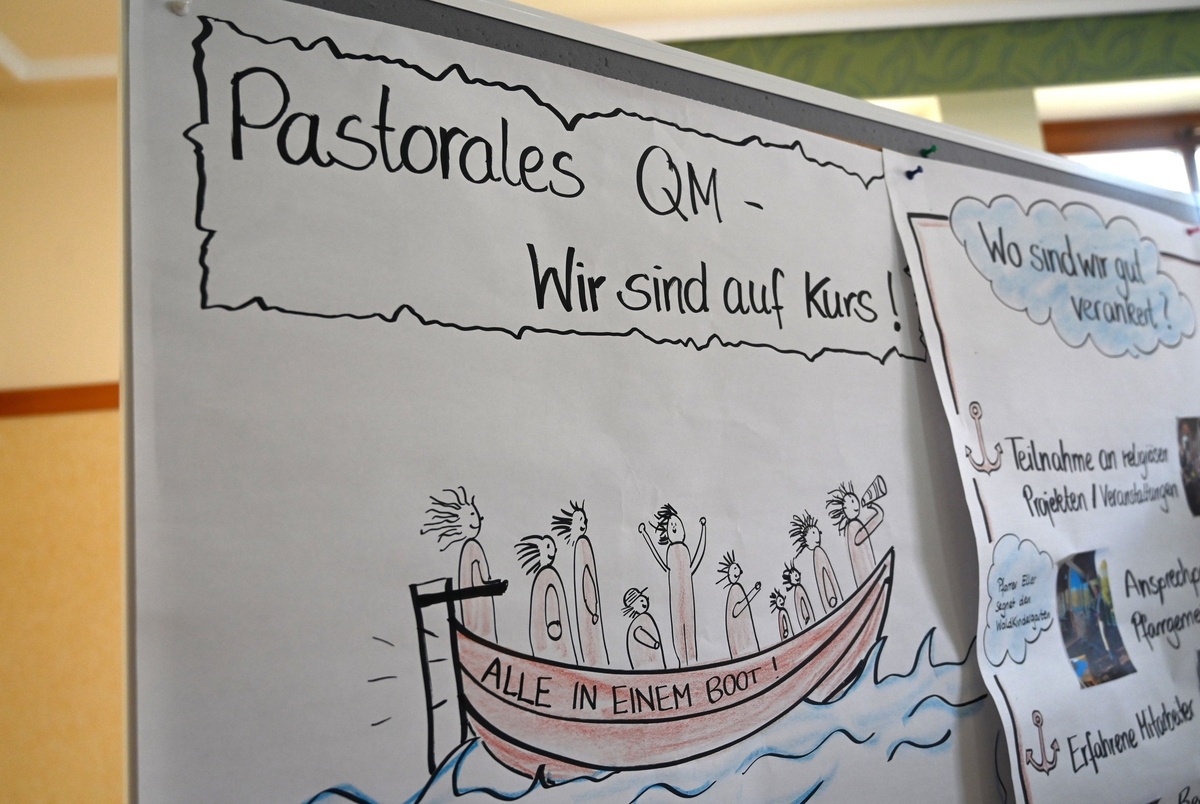 Pastorales QM -
Wir sind auf Kurs!
ALLE IN EINEM BOOT!
Wo sind wir gut
verankert?
Teilnahme an religiösen
Projekten / Veranstaltungen
Pfarrer Eller
Segnet den
Waldkindergarten
Erfahrene Mitarbeiter